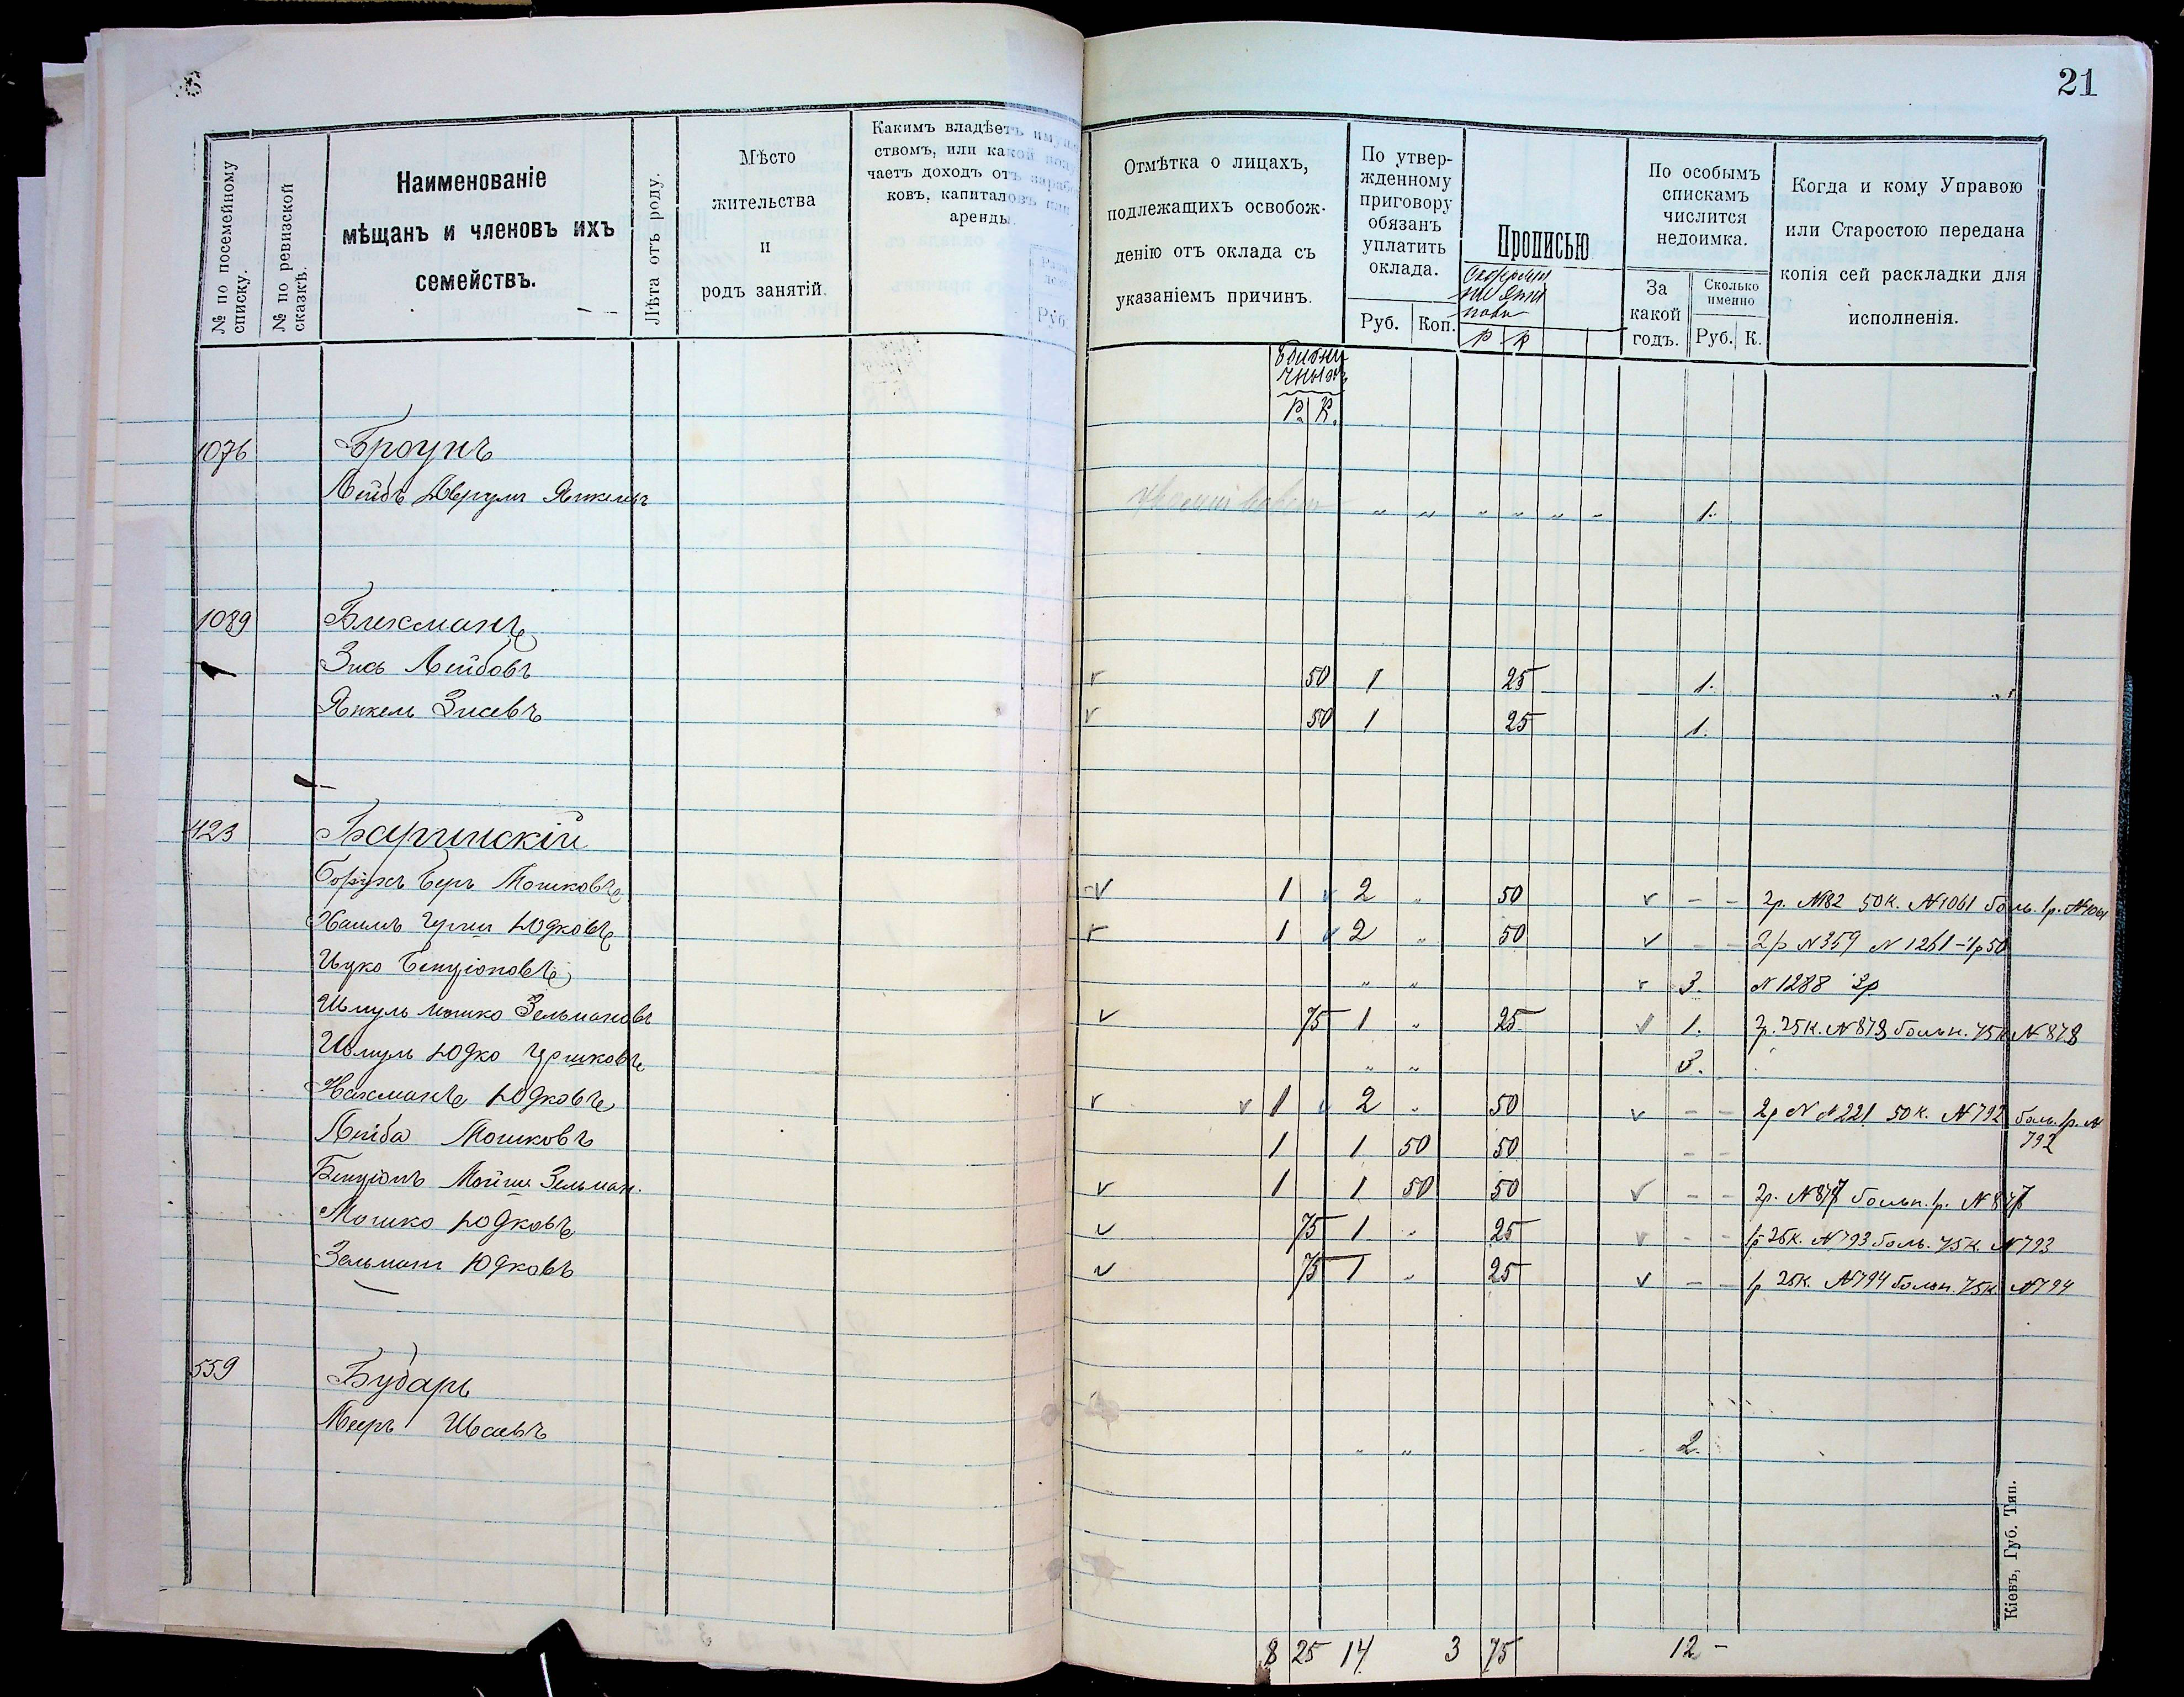 21
№ по посемейному списку.
№ по ревизской сказкѣ.
Наименованіе
мѣщанъ и членовъ ихъ
семействъ.
Лѣта отъ роду.
Мѣсто
жительства
и
родъ занятій.
Какимъ владѣетъ имуще-
ствомъ, или какой полу-
чаетъ доходъ отъ зарабо-
ковъ, капиталовъ или
аренды.
Руб.
Отмѣтка о лицахъ,
подлежащихъ освобож-
денію отъ оклада съ
указаніемъ причинъ.
По утвер-
жденному
приговору
обязанъ
уплатить
оклада.
Руб. Коп.
Прописью
Р К
По особымъ
спискамъ
числится
недоимка.
За
какой
годъ.
Сколько
именно
Руб. К.
Когда и кому Управою
или Старостою передана
копія сей раскладки для
исполненія.
Больни-
чныхъ
Р. К.
1076 Броунъ
Лейбъ Аврумъ Янкелев „ „ „ „ „ „ 1.
1089 Бихманъ
Зись Лейбовъ v 50 1 25 1.
Янкель Зисевъ v 50 1 25 1.
423
Беръ Мошковъ v 1 v 2 „ 50 v – – 2р. №82 50к. №1061 боль. 1р. №1061
Хаимъ Юдковъ v 1 v 2 „ 50 v – – 2р №359 №1261 – 1р50
Ицко Бенціоновъ „ „ v 3. №1288 2р
Шмуль Мошко Зельмановъ v 75 1 „ 25 v 1. 25к. №878 больн. 75к №878
Шмуль Юдко Гершковъ „ „ 3.
Нахманъ Юдковъ v v 1 v 2 „ 50 v – – 2р № 221 50к. №792 боль. 1р. №
792
Лейба Мошковъ 1 1 50 50 – –
Бенціонъ Мойше Зельман. v 1 1 50 50 v – – 2р. №877 больн. 1р. №877
Мошко Юдковъ v 75 1 „ 25 v – – 1р 25к. №793 боль. 75к. №793
Зельманъ Юдковъ v 75 1 „ 25 v – – 1р 25к. №794 больн. 75к. №794
559 Бударь
Мееръ „ „ 2.
8 25 14 3 75 12 –
Кіевъ, Губ. Тип.